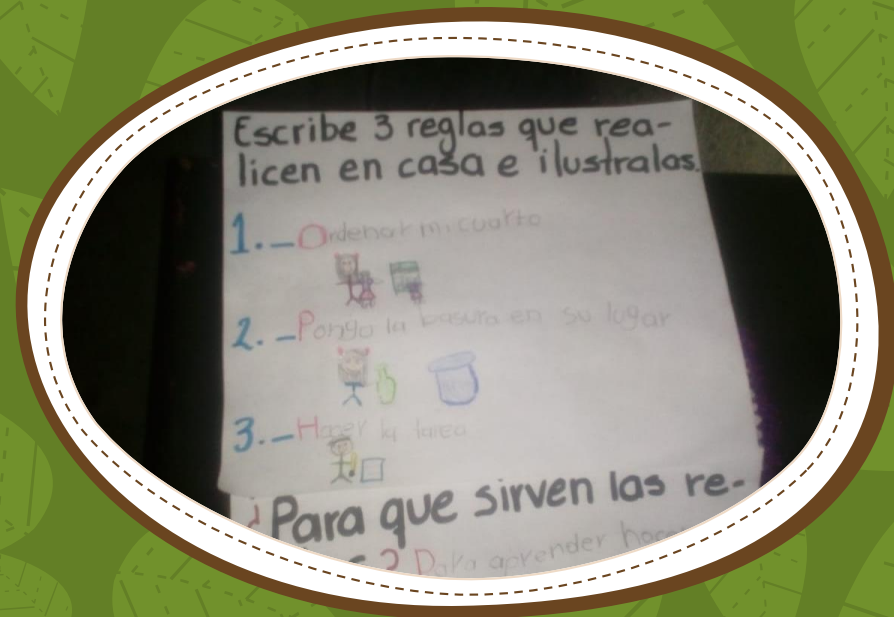 Escribe 3 reglas que rea-
licen en casa e ilustralas.
1._Ordenar mi cuarto
2._Pongo la basura en su lugar
3._Hacer la tarea
¿Para que sirven las re-
s? Para aprender hacer